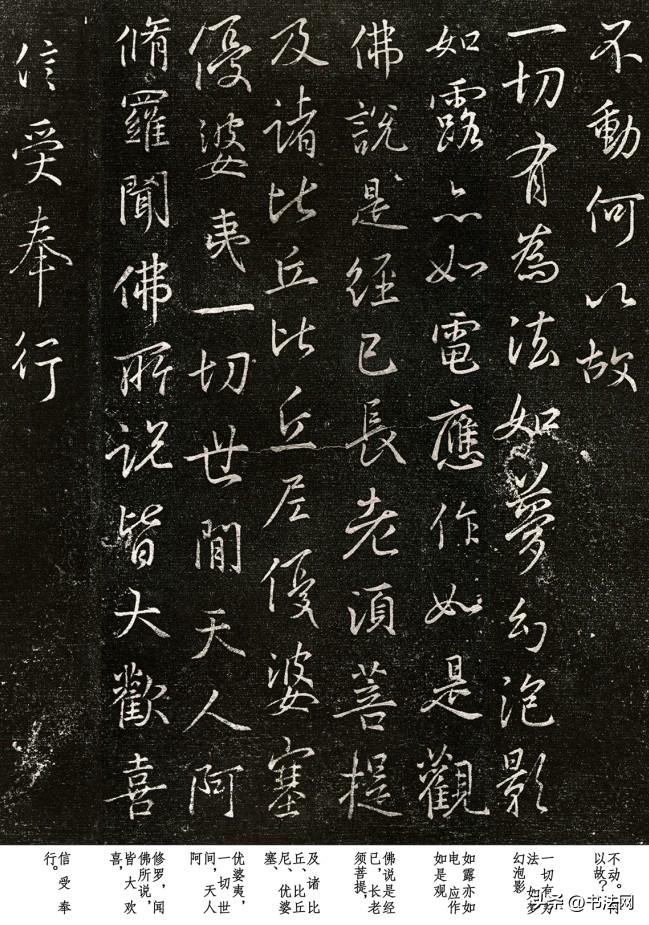 不動何以故
一切有為法如夢幻泡影
如露亦如電應作如是觀
佛說是經已長老須菩提
及諸比丘比丘尼優婆塞
優婆夷一切世間天人阿
脩羅聞佛所說皆大歡喜
信受奉行
不动。何
以故？
一切有为
法，如梦
幻泡影
如露亦如
电，应作
如是观
佛说是经
已，长老
须菩提，
及诸比
丘、比丘
尼、优婆
塞、
优婆夷，
一切世
间，天人
阿
修罗，闻
佛所说，
皆大欢
喜，
信受奉
行。
头条 @书法网